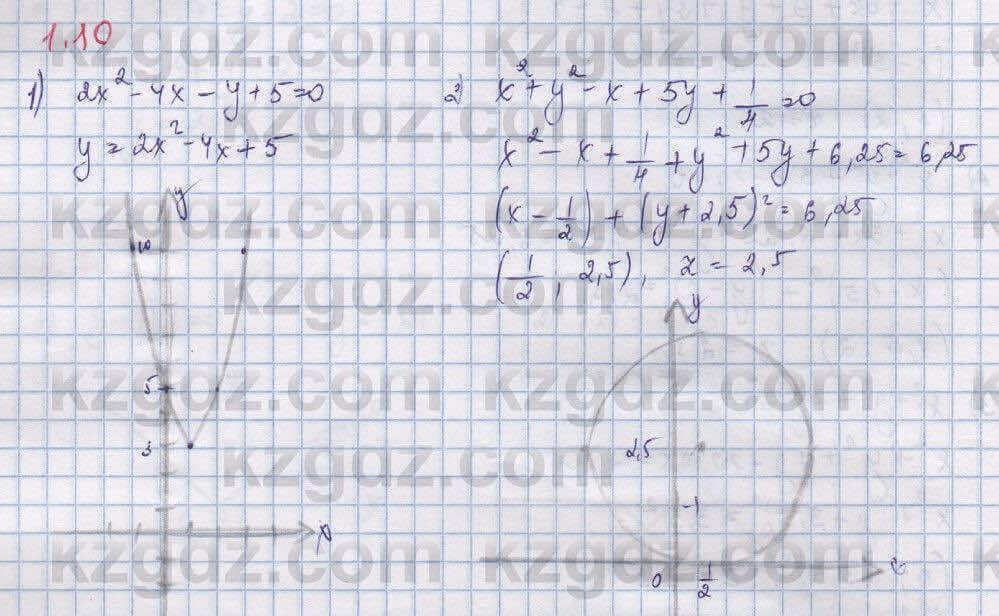 1.10
1) 2x² - 4x - y + 5 = 0
y = 2x² - 4x + 5
y
10
5
3
x
2) x² + y² - x + 5y + 1/4 = 0
x² - x + 1/4 + y² + 5y + 6,25 = 6,25
(x - 1/2) + (y + 2,5)² = 6,25
(1/2, 2,5), r = 2,5
y
2,5
-1
0 1/2
x
kzgdz.com
kzgdz.com
kzgdz.com
kzgdz.com
kzgdz.com
kzgdz.com
kzgdz.com
kzgdz.com
kzgdz.com
kzgdz.com
kzgdz.com
kzgdz.com